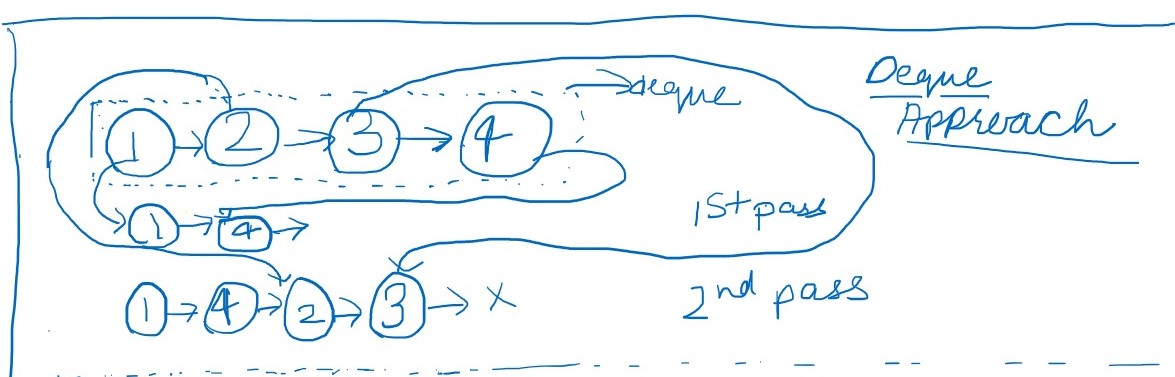 Deque
Approach
→deque
1 → 2 → 3 → 4
1 → 4 →
1st pass
1 → 4 → 2 → 3 → X
2nd pass